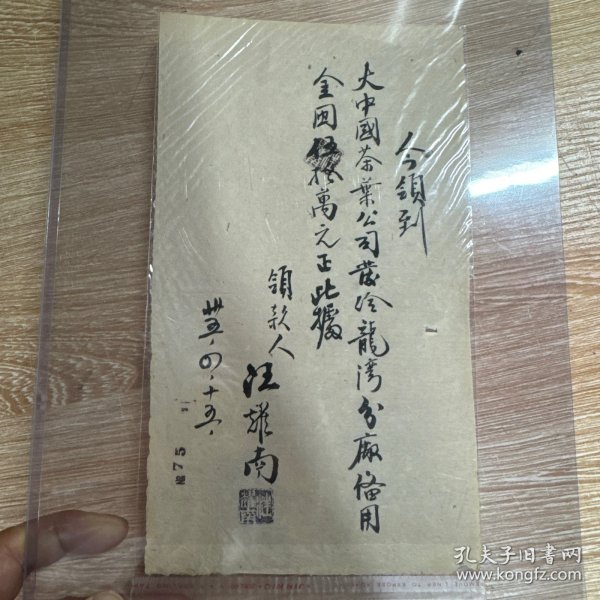 今領到
大中國茶葉公司發給龍灣分廠備用
金國幣伍拾萬元正此據
領款人 汪雄南
卅五.四.十五.
75
孔夫子旧书网
www.kongfz.com